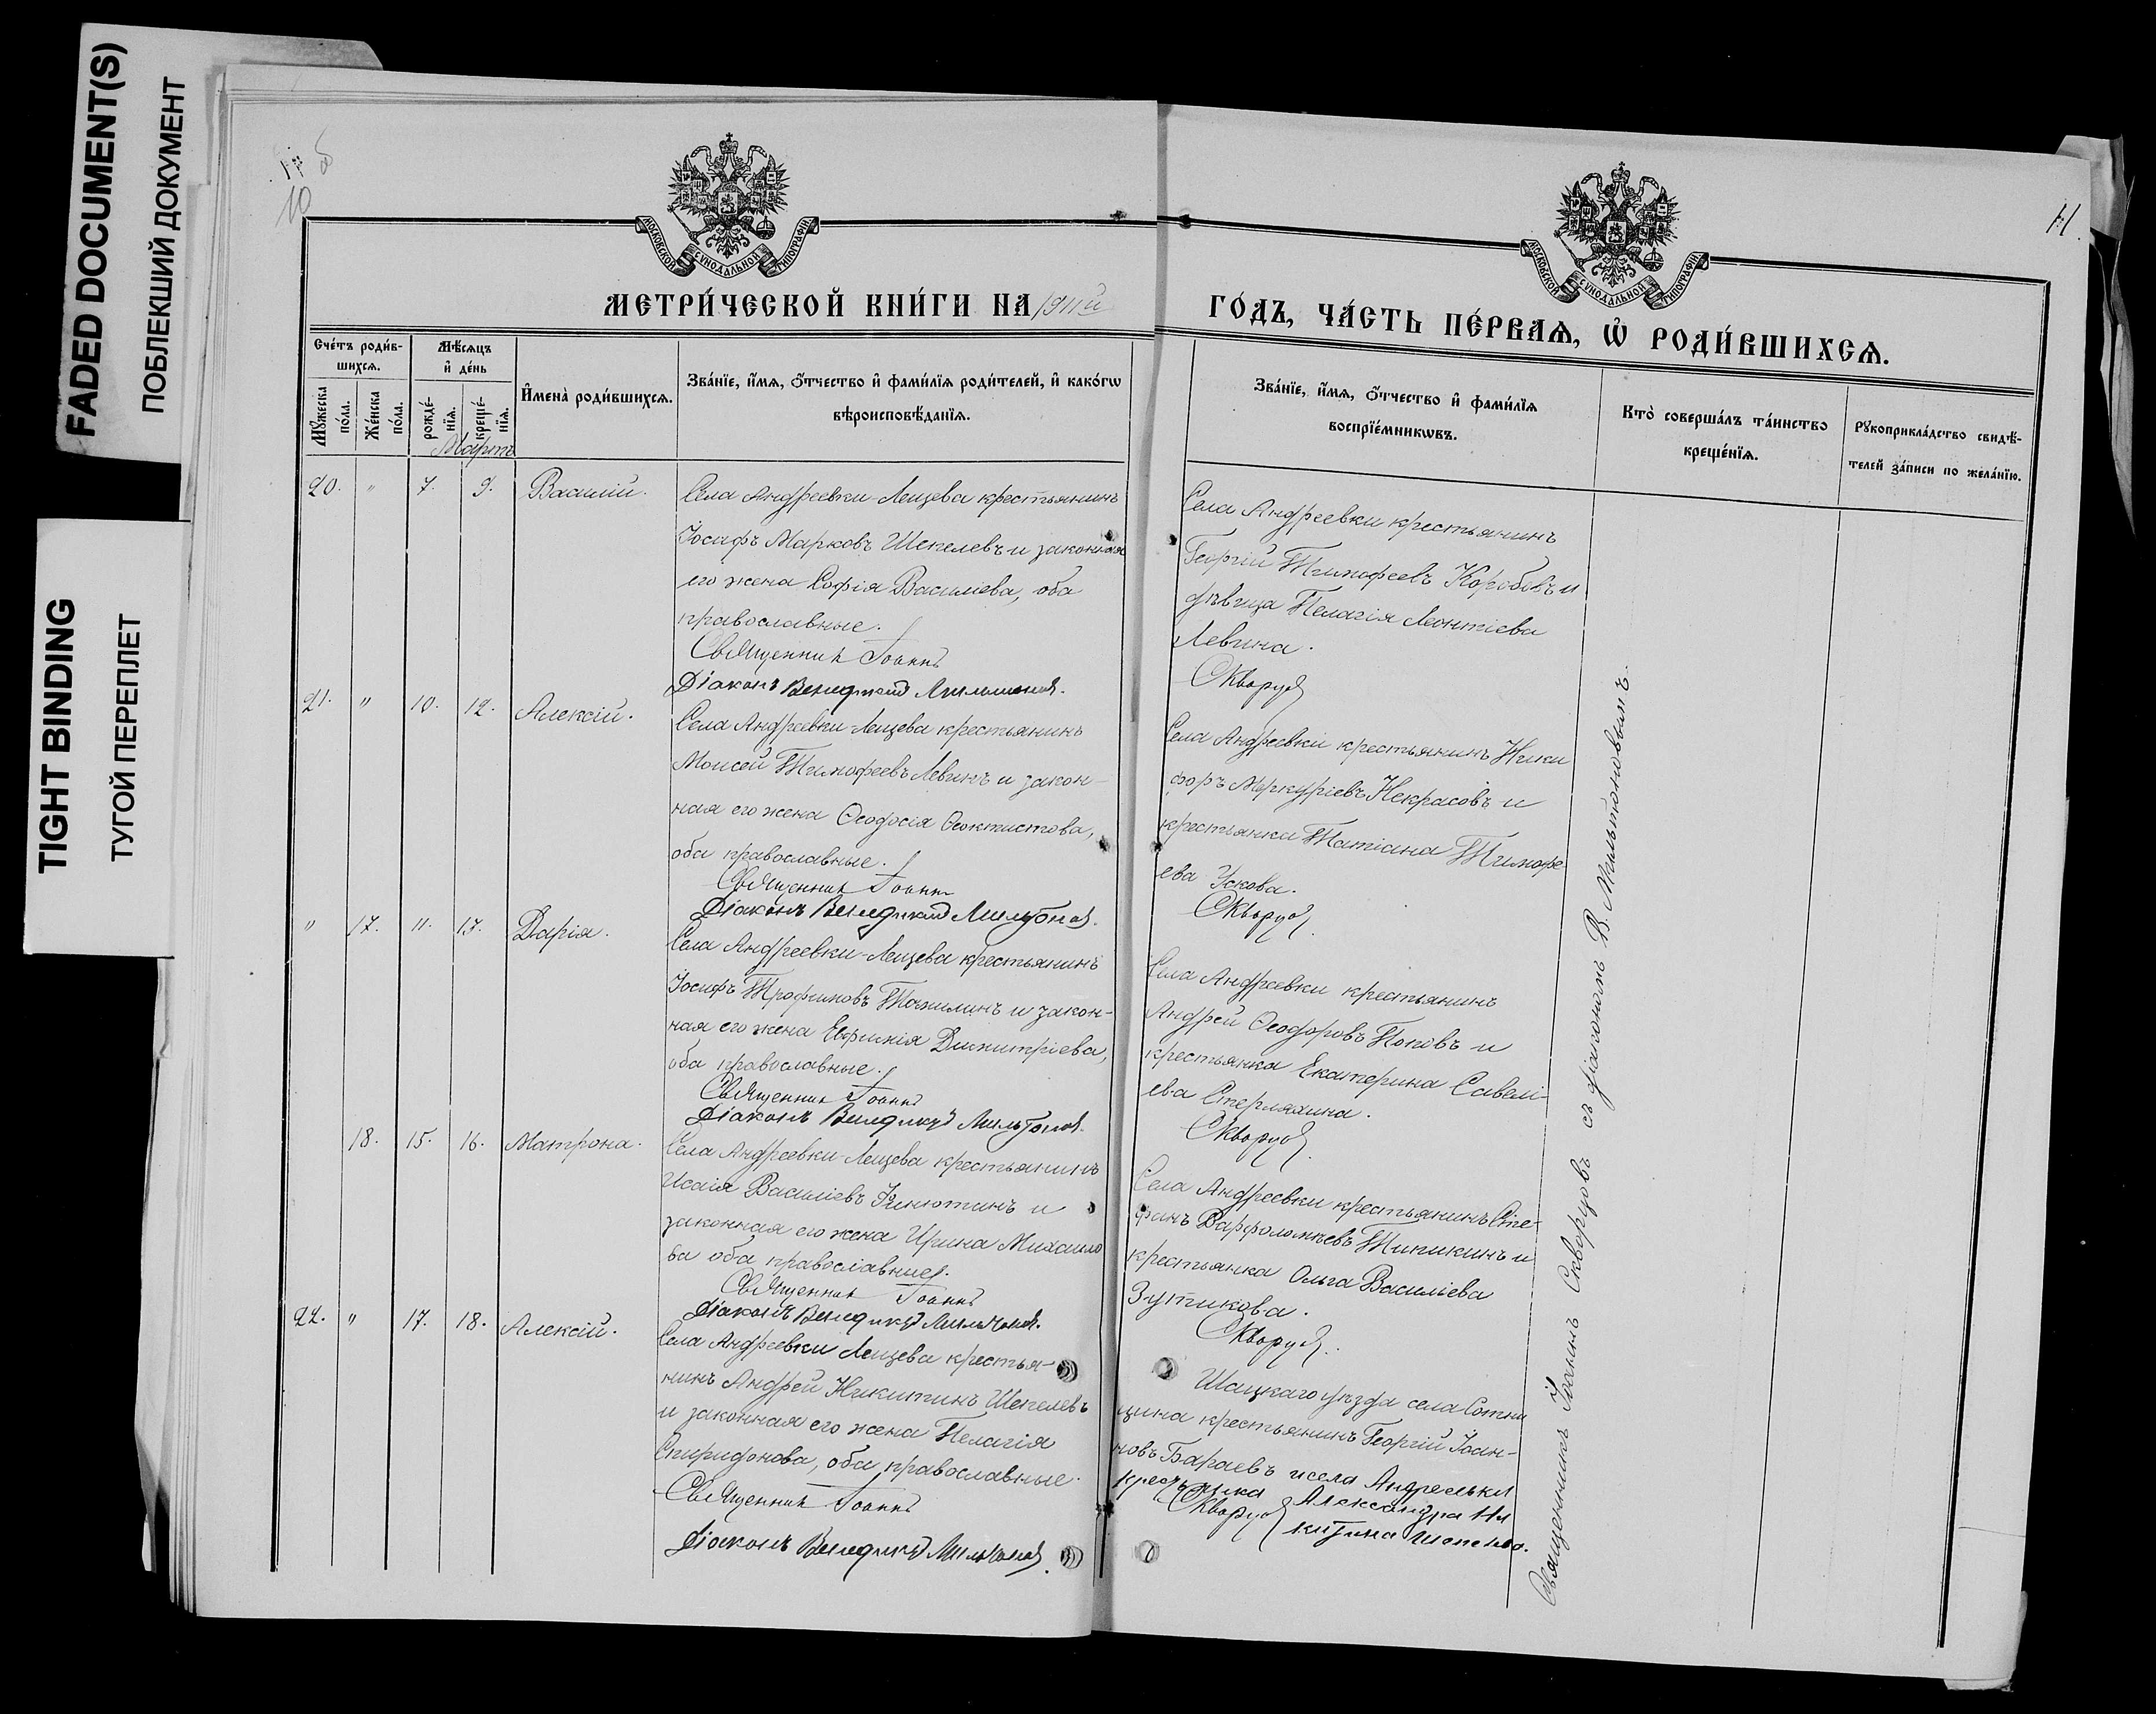 FADED DOCUMENT(S)
ПОБЛЕКШИЙ ДОКУМЕНТ
TIGHT BINDING
ТУГОЙ ПЕРЕПЛЕТ
10
11.
МОСКОВСКОЙ СѴНОДАЛЬНОЙ ТИПОГРАФІИ
МОСКОВСКОЙ СѴНОДАЛЬНОЙ ТИПОГРАФІИ
МЕТРИ́ЧЕСКОЙ КНИ́ГИ НА 1911й
ГО́ДЪ, ЧА́СТЬ ПЕ́РВАѦ, Ѡ҆ РОДИ́ВШИХСѦ.
Сче́тъ роди́в-
шихсѧ.
Мꙋ́жеска по́ла.
Же́нска по́ла.
Мѣ́сѧцъ
и҆ де́нь
рожде́-
нїѧ.
креще́-
нїѧ.
И҆мена̀ роди́вшихсѧ.
Зва́нїе, и҆́мѧ, ѻ҆́тчество и҆ фами́лїѧ роди́телей, и҆ како́гѡ
вѣроисповѣ́данїѧ.
Зва́нїе, и҆́мѧ, ѻ҆́тчество и҆ фами́лїѧ
воспрїе́мникѡвъ.
Кто̀ соверша́лъ та́инство
креще́нїѧ.
Рꙋкоприкла́дство свидѣ́-
телей за́писи по жела́нїю.
Мартъ
20. " 7. 9. Василій.
Села Андреевки-Лещева крестьянинъ
Іосифъ Марковъ Шепелевъ и законная
его жена Софія Василіева, оба
православные.
Священникъ Іоаннъ
Діаконъ Венедиктъ Мильтоновъ.
Села Андреевки крестьянинъ
Георгій Тимофеевъ Коробовъ и
дѣвица Пелагія Леонтіева
Левина.
Скворцовъ
21. " 10. 12. Алексій.
Села Андреевки-Лещева крестьянинъ
Моисей Тимофеевъ Левинъ и закон-
ная его жена Ѳеодосія Ѳеоктистова,
оба православные.
Священникъ Іоаннъ
Діаконъ Венедиктъ Мильтоновъ.
Села Андреевки крестьянинъ Ники
форъ Меркуріевъ Некрасовъ и
крестьянка Татіана Тимофе
ева Ускова.
Скворцовъ
" 17. 11. 13. Дарія.
Села Андреевки-Лещева крестьянинъ
Іосифъ Трофимовъ и закон-
ная его жена Евфимія Димитріева,
оба православные.
Священникъ Іоаннъ
Діаконъ Венедиктъ Мильтоновъ.
Села Андреевки крестьянинъ
Андрей Ѳеодоровъ Поповъ и
крестьянка Екатерина Савелі-
ева Стерляхина.
Скворцовъ
18. 15. 16. Матрона.
Села Андреевки-Лещева крестьянинъ
Исаія Василіевъ и
законная его жена Ирина Михаило
ва оба православные.
Священникъ Іоаннъ
Діаконъ Венедиктъ Мильтоновъ.
Села Андреевки крестьянинъ Сте-
фанъ Варфоломѣевъ Типикинъ и
крестьянка Ольга Василіева
Зутикова.
Скворцовъ
22. " 17. 18. Алексій.
Села Андреевки Лещева крестья-
нинъ Андрей Никитинъ Шепелевъ
и законная его жена Пелагія
Спиридонова, оба православные.
Священникъ Іоаннъ
Діаконъ Венедиктъ Мильтоновъ.
Шацкаго уѣзда села Сотни
цина крестьянинъ Георгій Іоан-
новъ Бараевъ и села Андреевки
крестьянка Александра Ни
китина
Скворцовъ
Священникъ Іоаннъ Скворцовъ съ діакономъ В. Мильтоновымъ.